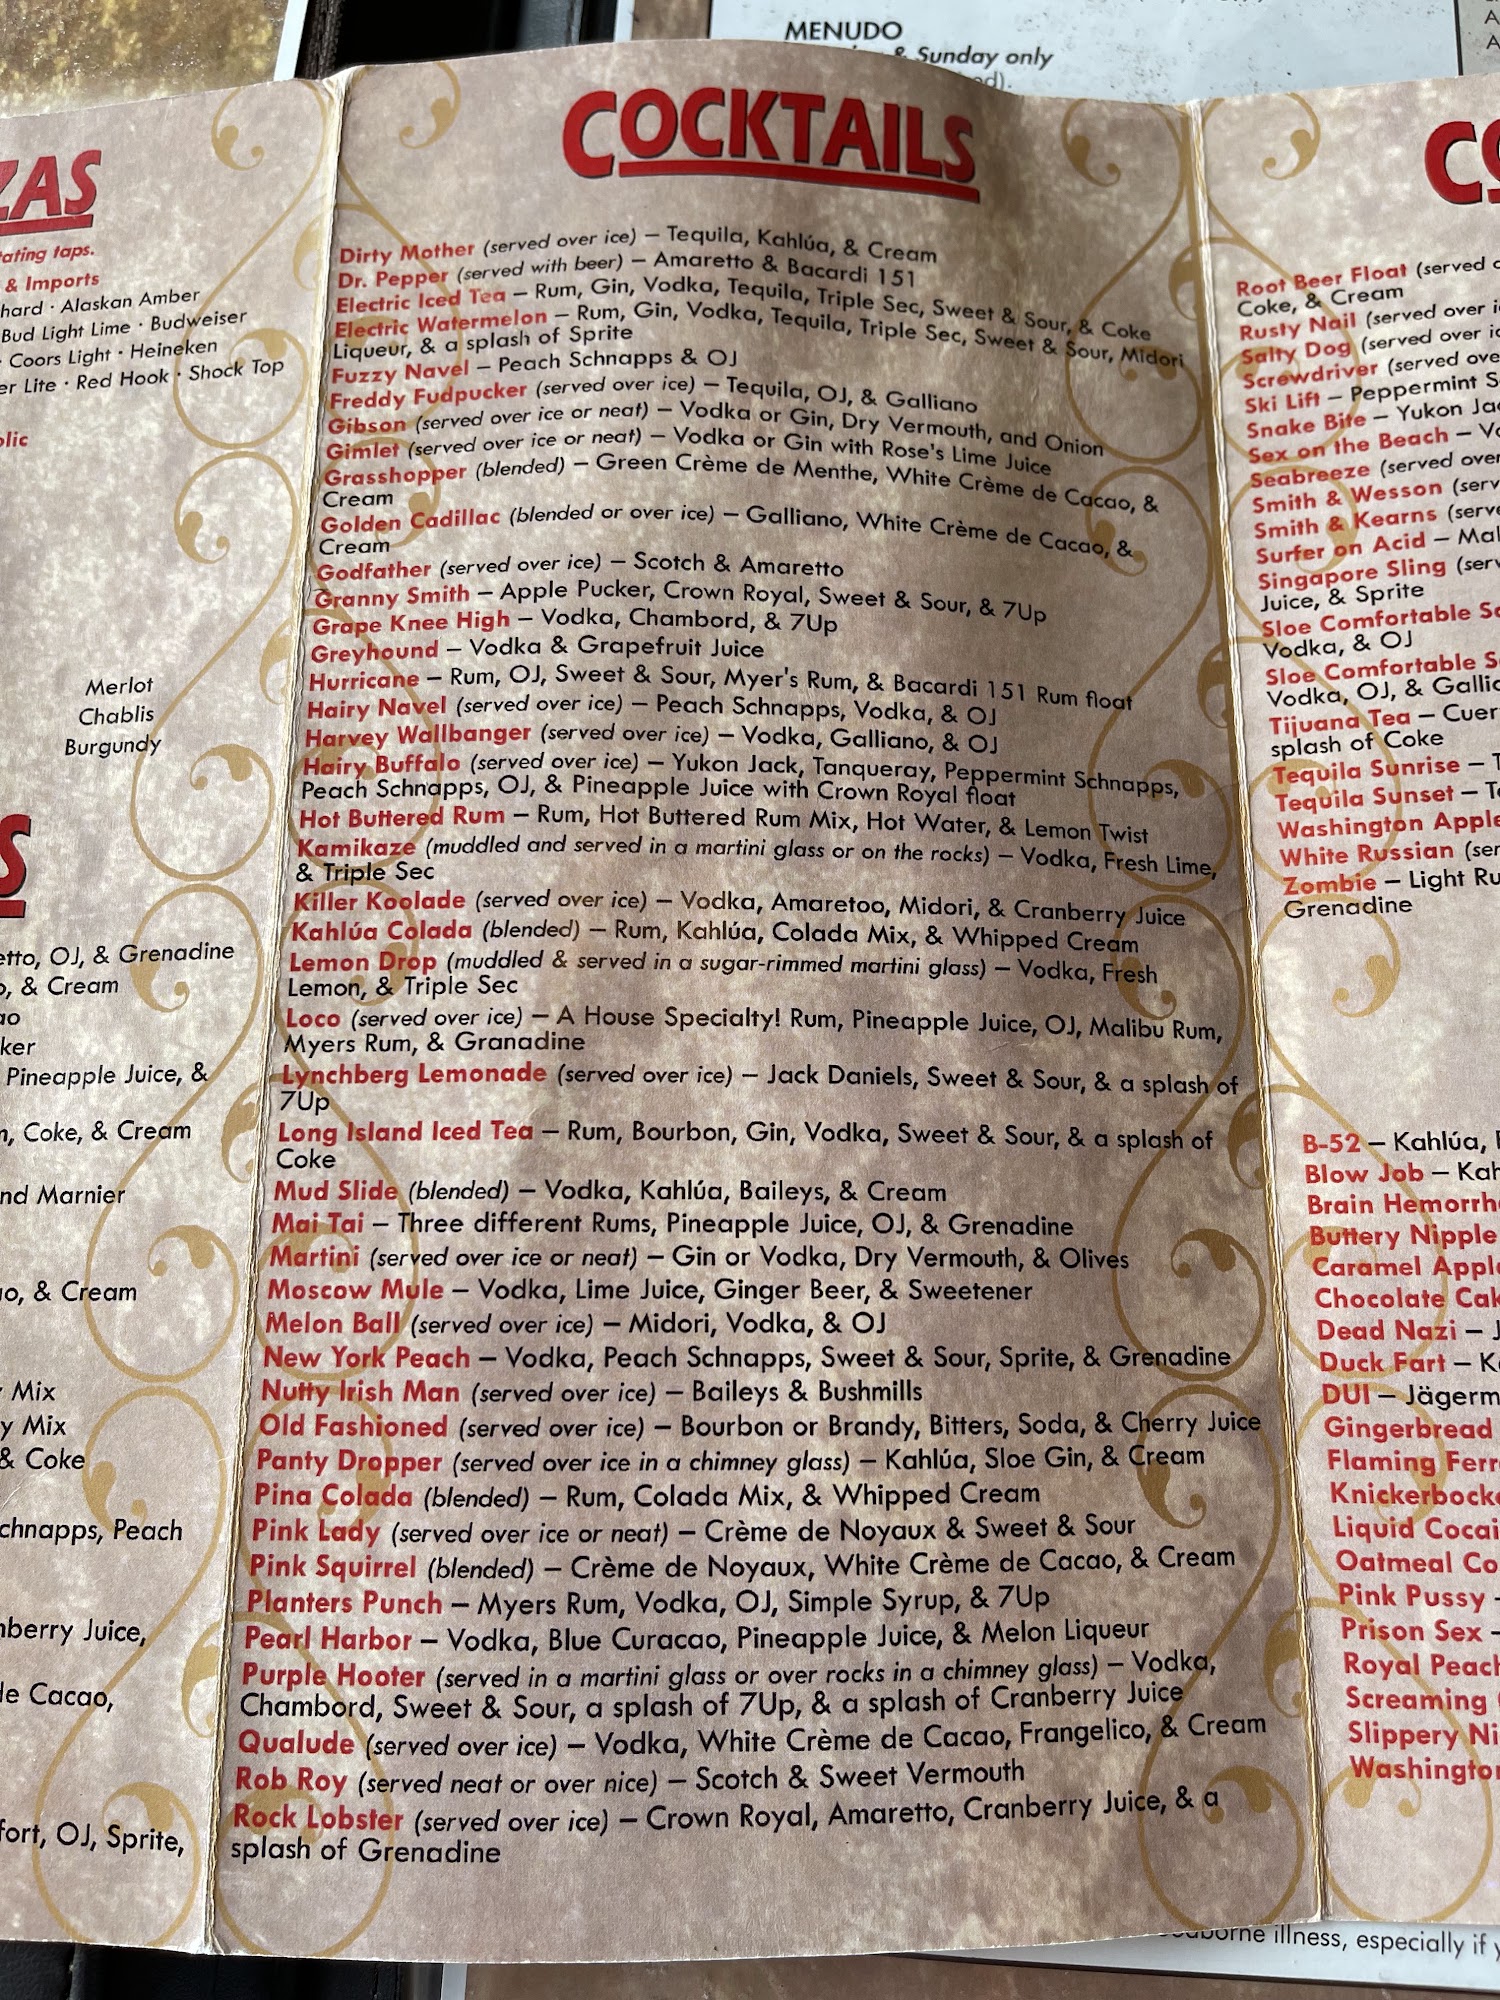 MENUDO
& Sunday only
COCKTAILS
Dirty Mother (served over ice) – Tequila, Kahlúa, & Cream
Dr. Pepper (served with beer) – Amaretto & Bacardi 151
Electric Iced Tea – Rum, Gin, Vodka, Tequila, Triple Sec, Sweet & Sour, & Coke
Electric Watermelon – Rum, Gin, Vodka, Tequila, Triple Sec, Sweet & Sour, Midori
Liqueur, & a splash of Sprite
Fuzzy Navel – Peach Schnapps & OJ
Freddy Fudpucker (served over ice) – Tequila, OJ, & Galliano
Gibson (served over ice or neat) – Vodka or Gin, Dry Vermouth, and Onion
Gimlet (served over ice or neat) – Vodka or Gin with Rose's Lime Juice
Grasshopper (blended) – Green Crème de Menthe, White Crème de Cacao, &
Cream
Golden Cadillac (blended or over ice) – Galliano, White Crème de Cacao, &
Cream
Godfather (served over ice) – Scotch & Amaretto
Granny Smith – Apple Pucker, Crown Royal, Sweet & Sour, & 7Up
Grape Knee High – Vodka, Chambord, & 7Up
Greyhound – Vodka & Grapefruit Juice
Hurricane – Rum, OJ, Sweet & Sour, Myer's Rum, & Bacardi 151 Rum float
Hairy Navel (served over ice) – Peach Schnapps, Vodka, & OJ
Harvey Wallbanger (served over ice) – Vodka, Galliano, & OJ
Hairy Buffalo (served over ice) – Yukon Jack, Tanqueray, Peppermint Schnapps,
Peach Schnapps, OJ, & Pineapple Juice with Crown Royal float
Hot Buttered Rum – Rum, Hot Buttered Rum Mix, Hot Water, & Lemon Twist
Kamikaze (muddled and served in a martini glass or on the rocks) – Vodka, Fresh Lime,
& Triple Sec
Killer Koolade (served over ice) – Vodka, Amaretoo, Midori, & Cranberry Juice
Kahlúa Colada (blended) – Rum, Kahlúa, Colada Mix, & Whipped Cream
Lemon Drop (muddled & served in a sugar-rimmed martini glass) – Vodka, Fresh
Lemon, & Triple Sec
Loco (served over ice) – A House Specialty! Rum, Pineapple Juice, OJ, Malibu Rum,
Myers Rum, & Granadine
Lynchberg Lemonade (served over ice) – Jack Daniels, Sweet & Sour, & a splash of
7Up
Long Island Iced Tea – Rum, Bourbon, Gin, Vodka, Sweet & Sour, & a splash of
Coke
Mud Slide (blended) – Vodka, Kahlúa, Baileys, & Cream
Mai Tai – Three different Rums, Pineapple Juice, OJ, & Grenadine
Martini (served over ice or neat) – Gin or Vodka, Dry Vermouth, & Olives
Moscow Mule – Vodka, Lime Juice, Ginger Beer, & Sweetener
Melon Ball (served over ice) – Midori, Vodka, & OJ
New York Peach – Vodka, Peach Schnapps, Sweet & Sour, Sprite, & Grenadine
Nutty Irish Man (served over ice) – Baileys & Bushmills
Old Fashioned (served over ice) – Bourbon or Brandy, Bitters, Soda, & Cherry Juice
Panty Dropper (served over ice in a chimney glass) – Kahlúa, Sloe Gin, & Cream
Pina Colada (blended) – Rum, Colada Mix, & Whipped Cream
Pink Lady (served over ice or neat) – Crème de Noyaux & Sweet & Sour
Pink Squirrel (blended) – Crème de Noyaux, White Crème de Cacao, & Cream
Planters Punch – Myers Rum, Vodka, OJ, Simple Syrup, & 7Up
Pearl Harbor – Vodka, Blue Curacao, Pineapple Juice, & Melon Liqueur
Purple Hooter (served in a martini glass or over rocks in a chimney glass) – Vodka,
Chambord, Sweet & Sour, a splash of 7Up, & a splash of Cranberry Juice
Qualude (served over ice) – Vodka, White Crème de Cacao, Frangelico, & Cream
Rob Roy (served neat or over nice) – Scotch & Sweet Vermouth
Rock Lobster (served over ice) – Crown Royal, Amaretto, Cranberry Juice, & a
splash of Grenadine
taps.
& Imports
· Alaskan Amber
Bud Light Lime · Budweiser
· Coors Light · Heineken
Lite · Red Hook · Shock Top
Merlot
Chablis
Burgundy
OJ, & Grenadine
& Cream
Pineapple Juice, &
Coke, & Cream
Marnier
& Cream
Mix
Mix
& Coke
Peach
Juice,
de Cacao,
OJ, Sprite,
Root Beer Float (served
Coke, & Cream
Rusty Nail (served over
Salty Dog (served over
Screwdriver (served
Ski Lift – Peppermint
Snake Bite – Yukon
Sex on the Beach –
Seabreeze (served over
Smith & Wesson
Smith & Kearns
Surfer on Acid –
Singapore Sling
Juice, & Sprite
Sloe Comfortable
Vodka, & OJ
Sloe Comfortable
Vodka, OJ, &
Tijuana Tea –
splash of Coke
Tequila Sunrise –
Tequila Sunset –
Washington Apple
White Russian
Zombie – Light
Grenadine
B-52 – Kahlúa,
Blow Job –
Brain
Buttery Nipple
Caramel
Chocolate
Dead Nazi –
Duck Fart –
DUI –
Gingerbread
Flaming
Liquid
Oatmeal
Pink Pussy
Prison Sex –
Royal
Screaming
Slippery
illness, especially if